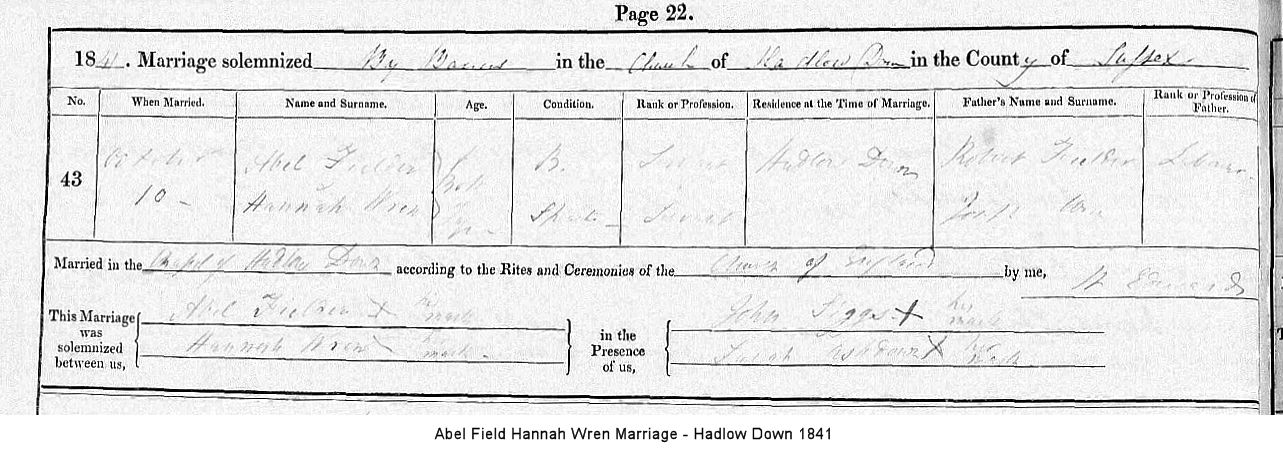 Page 22.
1841. Marriage solemnized By Banns in the Church of Hadlow Down in the County of Sussex
No. When Married. Name and Surname. Age. Condition. Rank or Profession. Residence at the Time of Marriage. Father's Name and Surname. Rank or Profession of Father.
43 October 10 Abel Fielder Both B. Servant Hadlow Down Robert Fielder Labourer
Hannah Wren Age Spinster Servant Joseph Wren
Married in the Chapel of Hadlow Down according to the Rites and Ceremonies of the Church of England by me, Edwards
This Marriage was solemnized between us, Abel Fielder X his mark
Hannah Wren X her mark
in the Presence of us, John Siggs X his mark
Sarah Ashdown X her mark
Abel Field Hannah Wren Marriage - Hadlow Down 1841